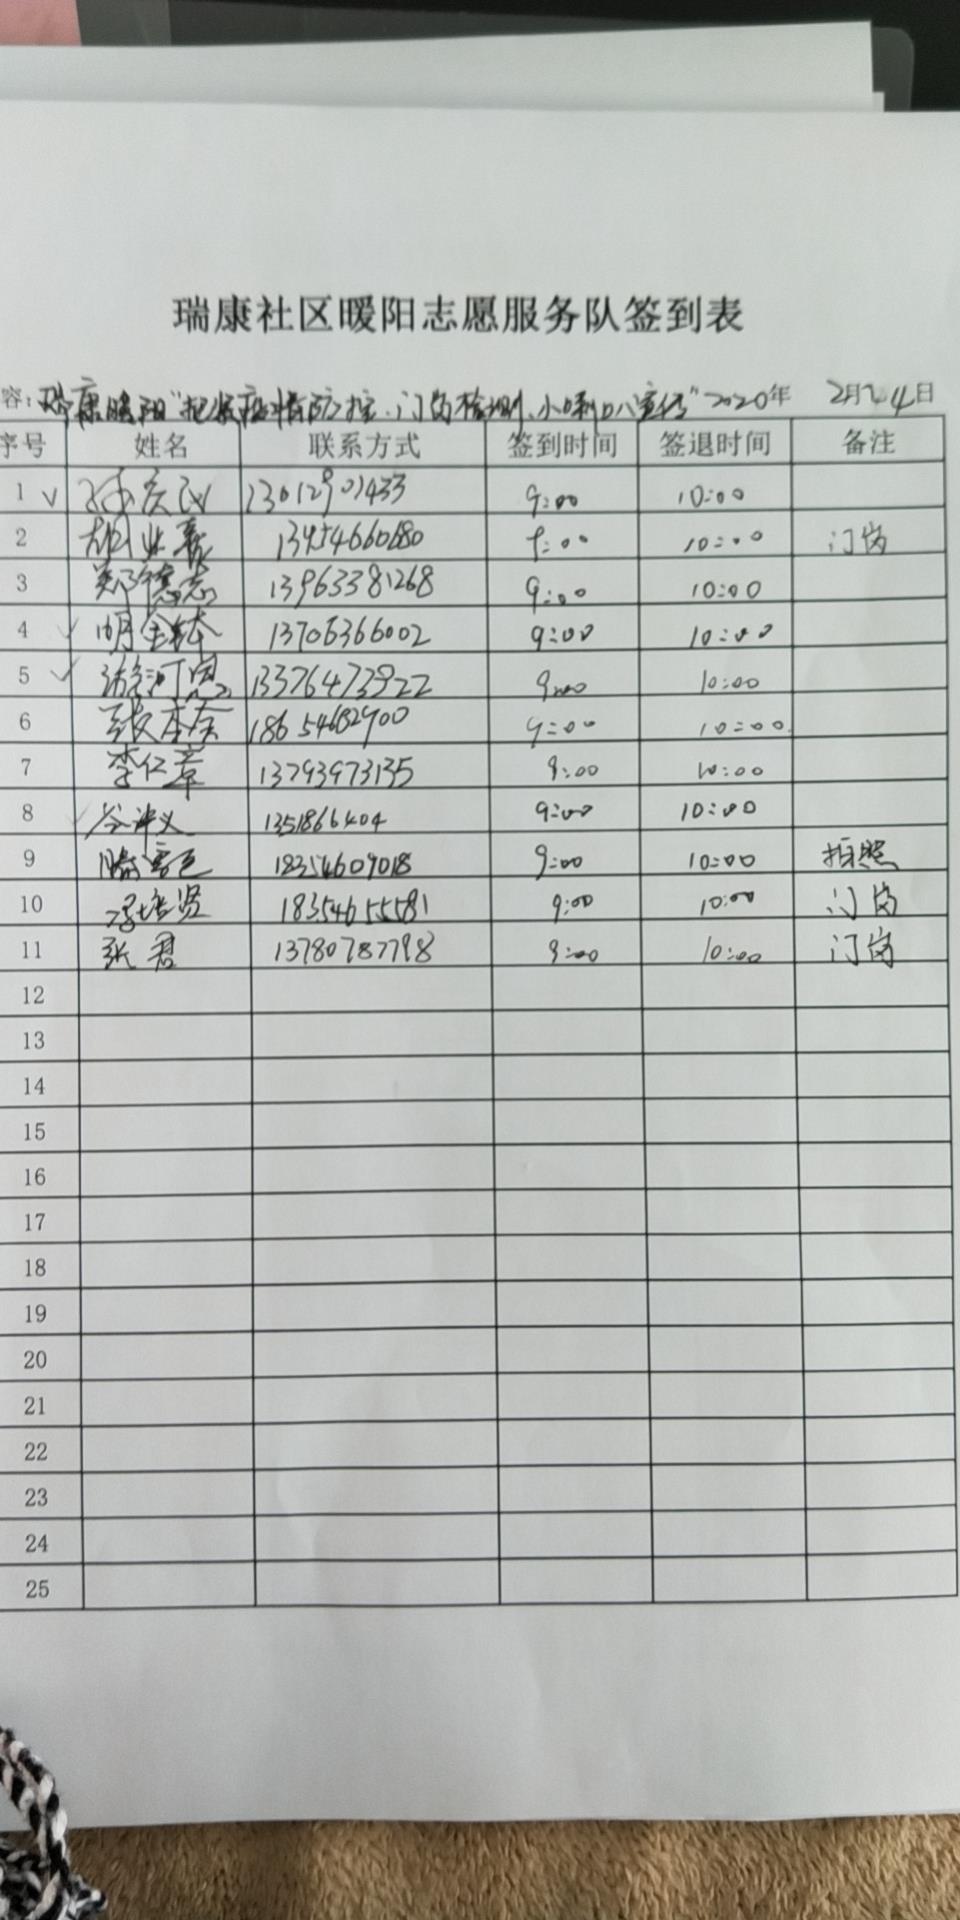 瑞康社区暖阳志愿服务队签到表
容: 瑞康暖阳"把紧疫情防控、门岗检测、小喇叭宣传" 2020年 2月24日
序号 姓名 联系方式 签到时间 签退时间 备注
1 √ 13012901433 9:00 10:00
2 13454660680 9:00 10:00 门岗
3 郑德志 13963381268 9:00 10:00
4 √ 13706366002 9:00 10:00
5 √ 13376473922 9:00 10:00
6 18654682900 9:00 10:00
7 李仁章 13793973135 9:00 10:00
8 1351866404 9:00 10:00
9 18354609018 9:00 10:00 拍照
10 冯培贤 18354655581 9:00 10:00 门岗
11 张君 13780787798 9:00 10:00 门岗
12
13
14
15
16
17
18
19
20
21
22
23
24
25